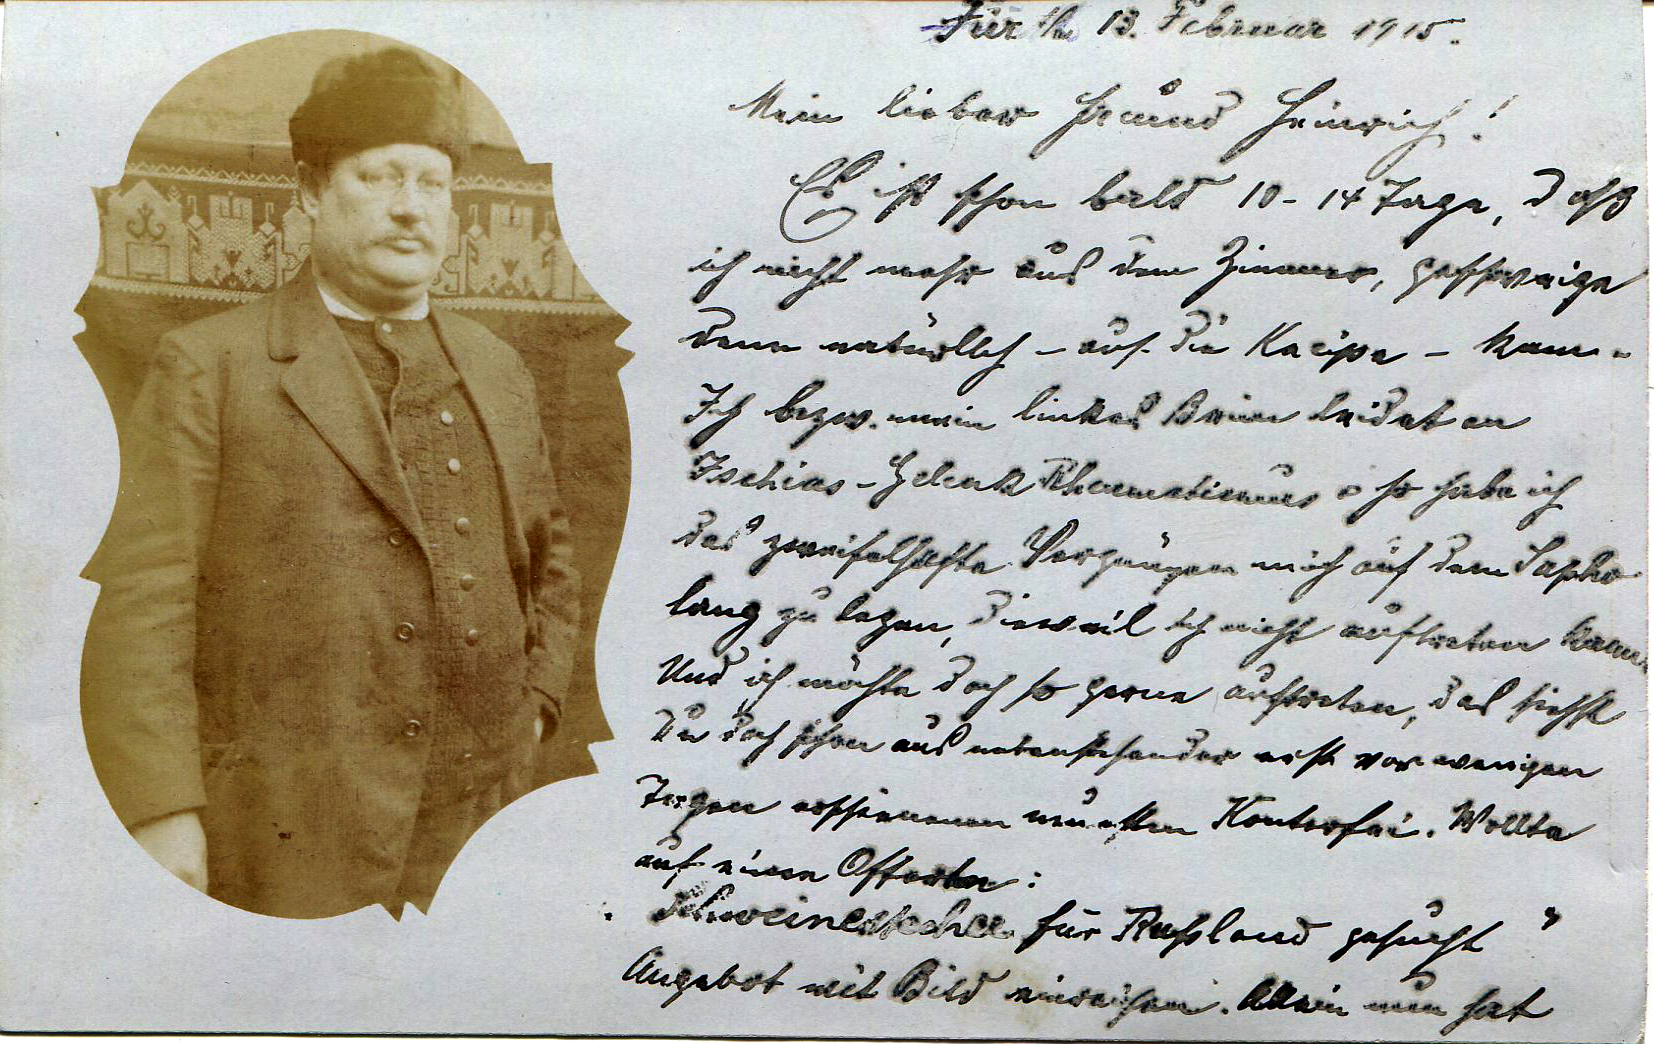 Fürth 13. Februar 1915.
Mein lieber Freund Heinrich!
Es ist schon bald 10-14 Tage, daß
ich nicht mehr aus dem Zimmer, geschweige
denn natürlich - auf die Kneipe - kann.
Ich bezw. mein linkes Bein leidet an
Ischias-Gelenk Rheumatismus u so habe ich
das zweifelhafte Vergnügen mich auf dem Sopha
lang zu legen, dieweil ich nicht auftreten kann.
Und ich möchte doch so gerne auftreten, das siehst
Du doch schon aus nebenstehender erst vor wenigen
Tagen erschienenen neuesten Konterfei. Wollte
auf eine Offerte:
für Rußland gesucht"
Angebot mit Bild einreichen. Allein nun hat